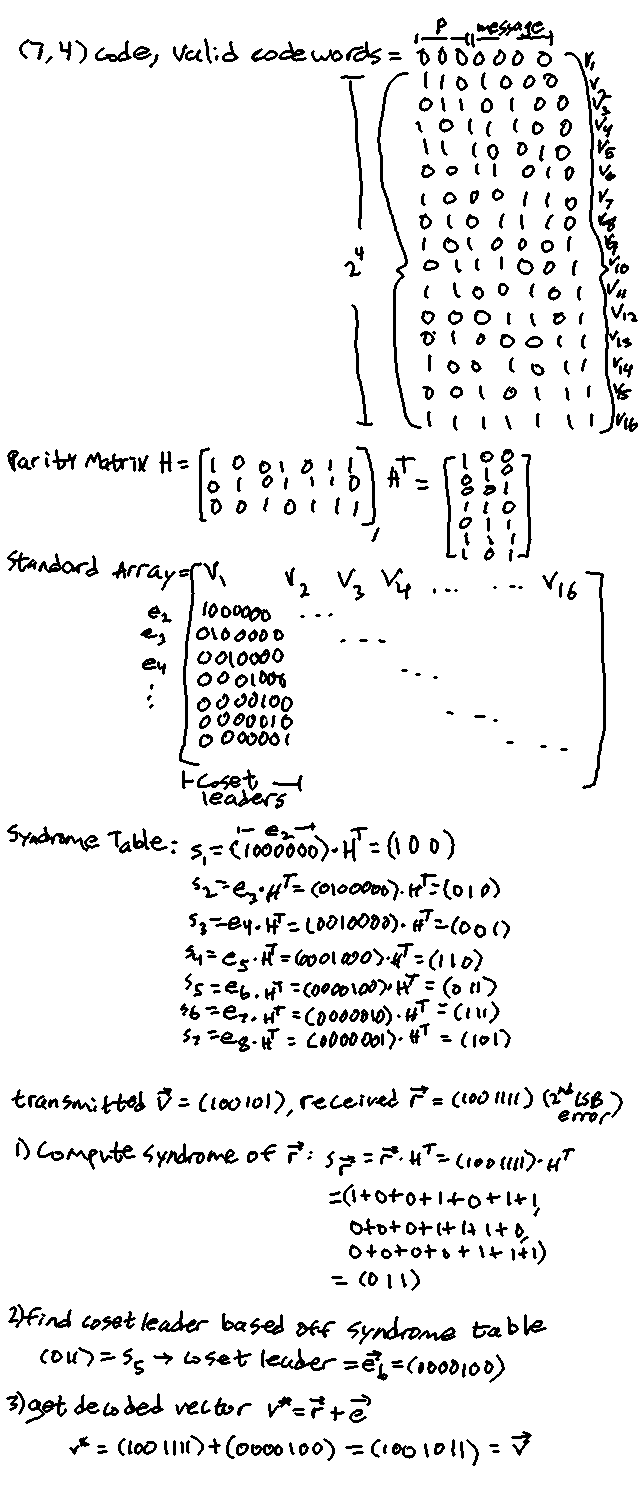 P message
(7,4) code, valid codewords = 0 0 0 0 0 0 0 V₁
1 1 0 1 0 0 0 V₂
0 1 1 0 1 0 0 V₃
1 0 1 1 1 0 0 V₄
1 1 1 0 0 1 0 V₅
0 0 1 1 0 1 0 V₆
1 0 0 0 1 1 0 V₇
0 1 0 1 1 1 0 V₈
1 0 1 0 0 0 1 V₉
2⁴ 0 1 1 1 0 0 1 V₁₀
1 1 0 0 1 0 1 V₁₁
0 0 0 1 1 0 1 V₁₂
0 1 0 0 0 1 1 V₁₃
1 0 0 1 0 1 1 V₁₄
0 0 1 0 1 1 1 V₁₅
1 1 1 1 1 1 1 V₁₆
Parity Matrix H = [1 0 0 1 0 1 1
0 1 0 1 1 1 0
0 0 1 0 1 1 1], Hᵀ = [1 0 0
0 1 0
0 0 1
1 1 0
0 1 1
1 1 1
1 0 1]
Standard Array = [V₁ V₂ V₃ V₄ ... ... V₁₆]
e₂ 1000000 ...
e₃ 0100000 ...
e₄ 0010000 ...
⋮ 0001000
0000100 ...
0000010
0000001 ...
Coset
leaders
e₂
Syndrome Table: s₁=(1000000)·Hᵀ=(100)
s₂=e₃·Hᵀ=(0100000)·Hᵀ=(010)
s₃=e₄·Hᵀ=(0010000)·Hᵀ=(001)
s₄=e₅·Hᵀ=(0001000)·Hᵀ=(110)
s₅=e₆·Hᵀ=(0000100)·Hᵀ=(011)
s₆=e₇·Hᵀ=(0000010)·Hᵀ=(111)
s₇=e₈·Hᵀ=(0000001)·Hᵀ=(101)
transmitted v⃗=(100101), received r⃗=(1001111) (2nd LSB
error)
1) Compute syndrome of r⃗: s_r⃗=r⃗·Hᵀ=(1001111)·Hᵀ
=(1+0+0+1+0+1+1,
0+0+0+1+1+1+0,
0+0+0+0+1+1+1)
=(011)
2) find coset leader based off syndrome table
(011)=s₅→coset leader=e⃗₆=(0000100)
3) get decoded vector v*=r⃗+e⃗
v*=(1001111)+(0000100)=(1001011)=v⃗